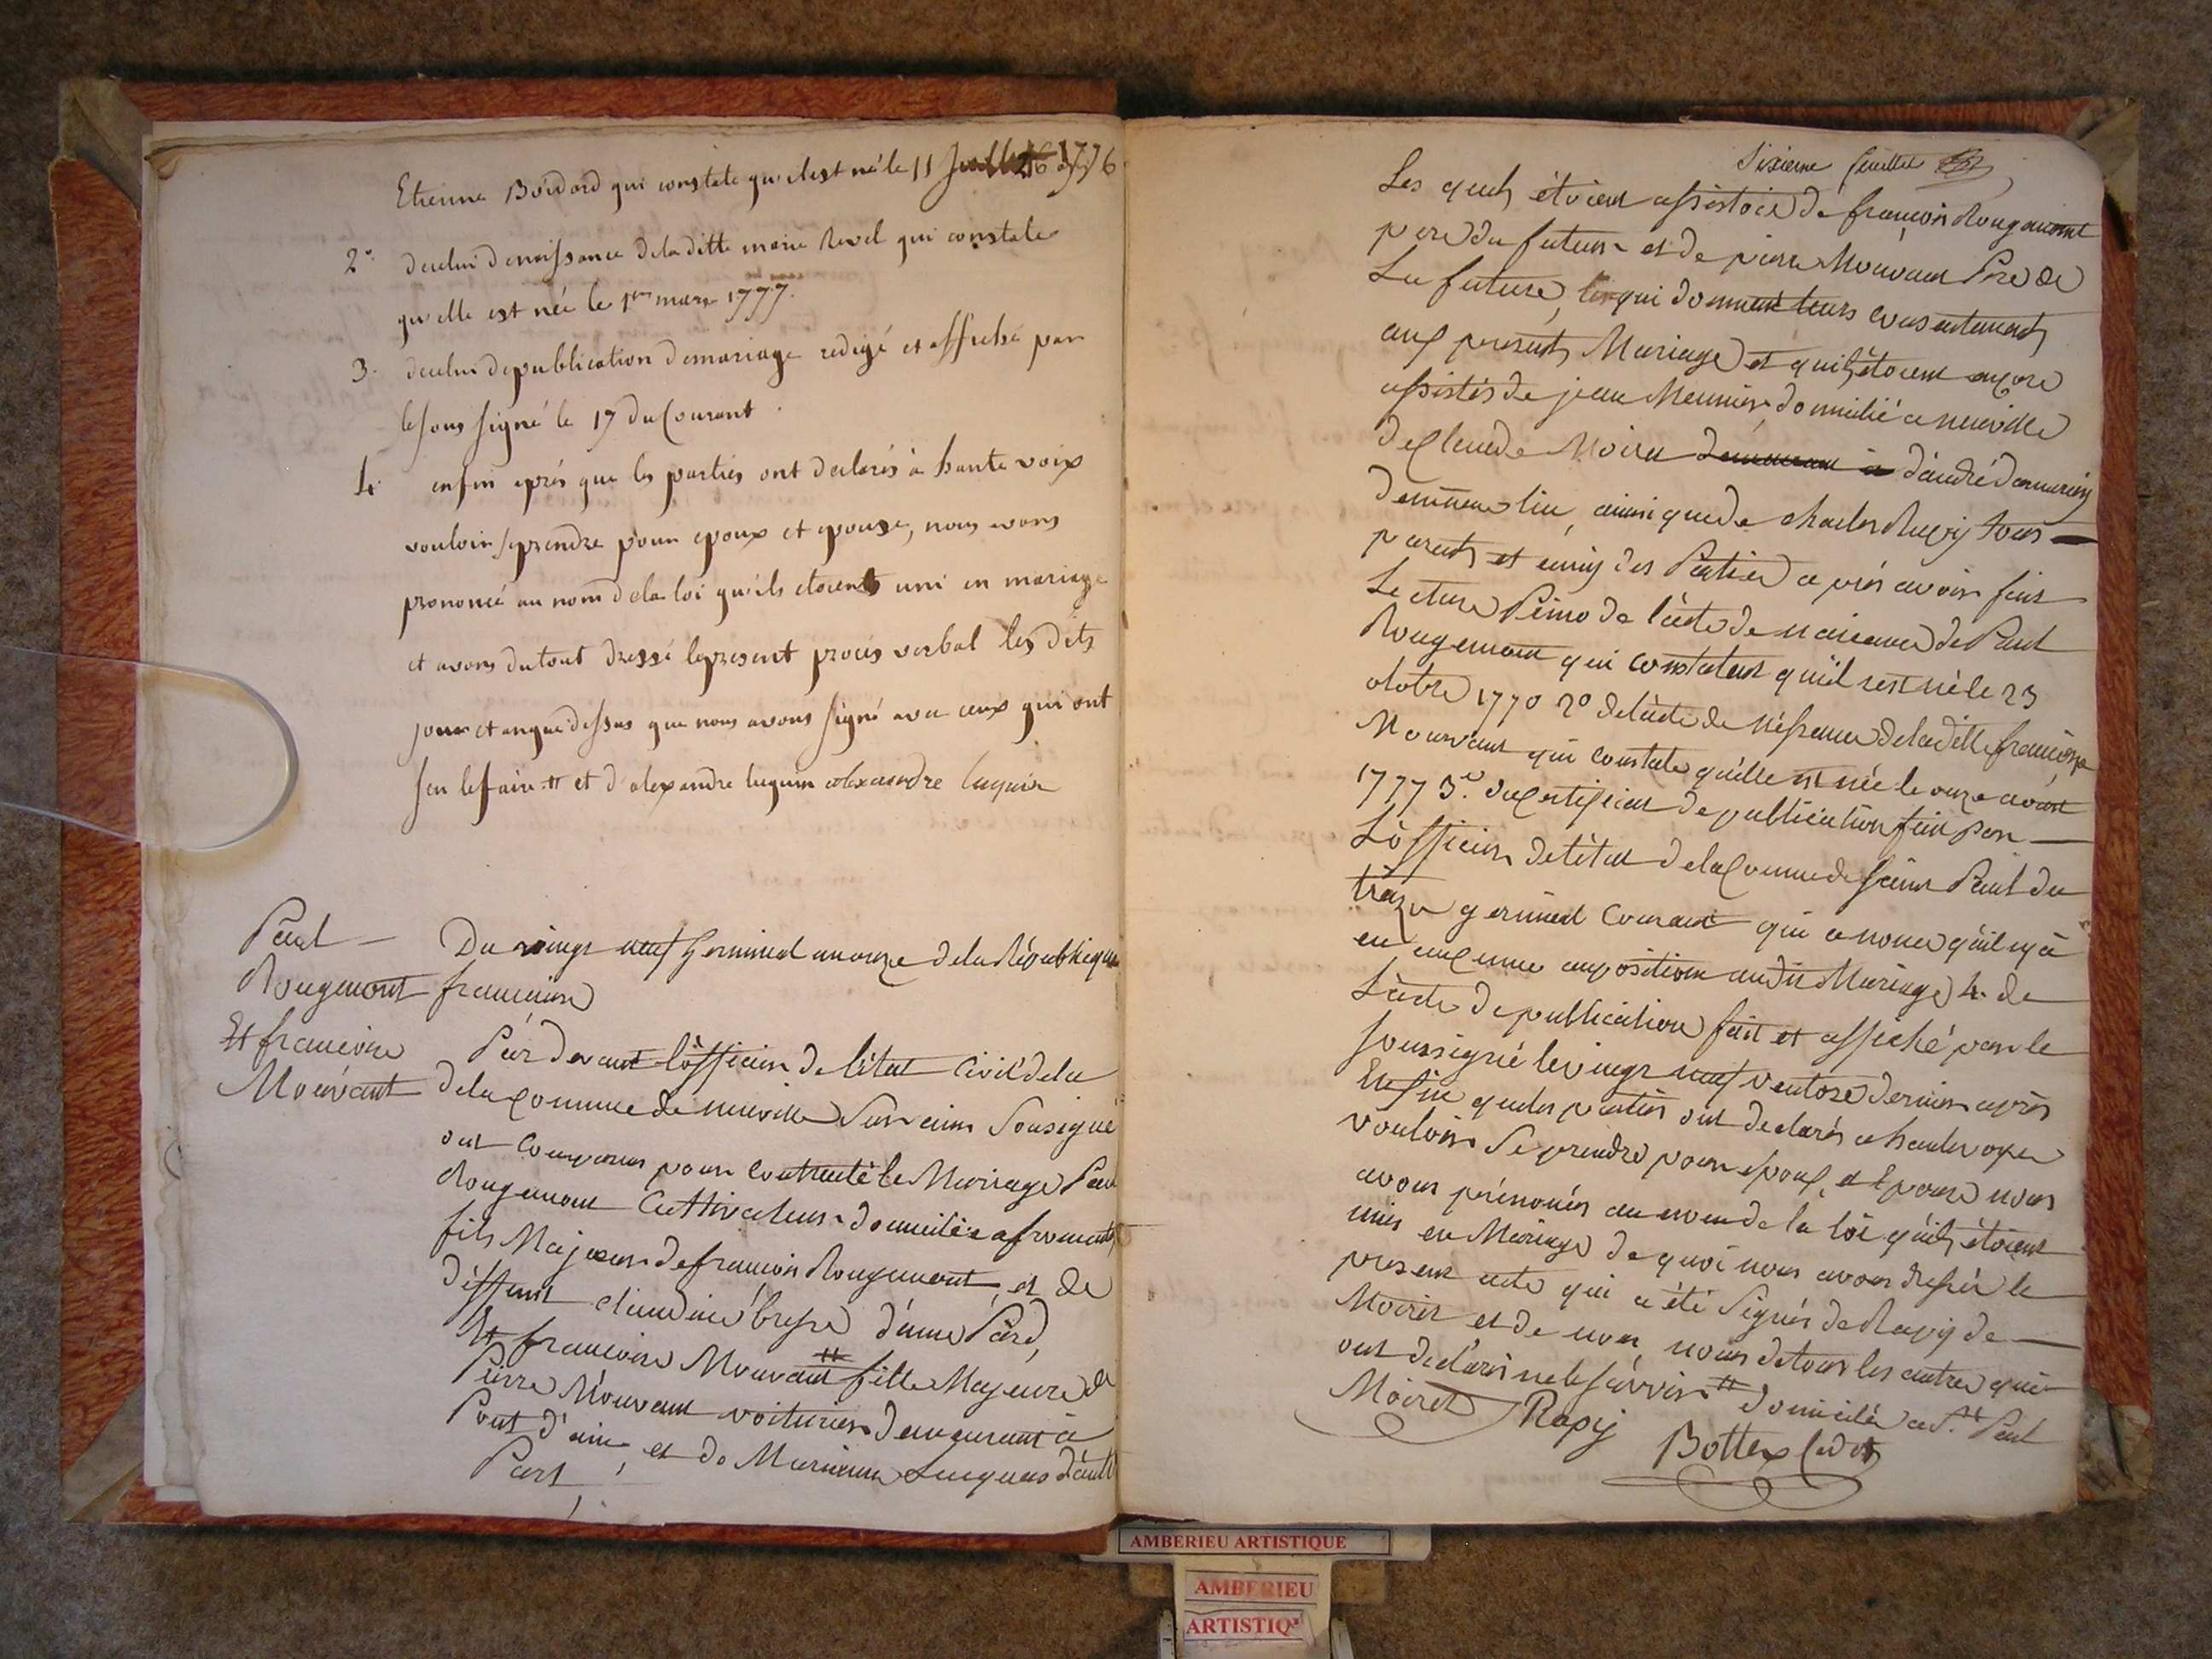 Etienne Boidard qui constate qu'il est né le 11 1776
2° de celui de naissance de la ditte marie Revel qui constate
qu'elle est née le 1er mars 1777.
3. de celui de publication de mariage redigé et affiché par
le sous signé le 17 du Courant.
4. enfin aprés que les parties ont declarés à haute voix
vouloir se prendre pour epoux et epouse, nous avons
prononcé au nom de la loi qu'ils etoients uni en mariage
et avons du tout dressé le present procés verbal les dits
jour et an que dessus que nous avons signé avec ceux qui ont
scu le faire # et d'alexandre luquin alexandre luquin
Paul —
Rougemont
Et francoise
Mouvant
Du vingt neuf Germinal an onze de la Républeque
francaise
Pàr devant l'officier de l'état Civil de la
de la Commune de neuville Sur ain Sousigné
ont comparus pour Contracté le Mariage Paul
Rougemont Cultivateur domiciliè a fromente
fils Majeur de francois Rougemont, et de
déffunt claudine bresse d'une Pàrd,
Et francoise Mouvant # fille Majeure de
Pierre Mouvant voiturier demeurant à
Pont d'ain, et de Marianne Luquas d'autre
Part,
Sixieme feuillet
Les quels étoient assistoié de francois Rougemont
pere du futeur et de pierre Mouvant Pere de
La future, qui donnent leurs consentements
aux presents Mariage et qui étoient encore
assistés de jean Meunier, domicilié a neuville
de Claude Moiret d'andré
de même lieu, ainsi que de charles Rapij tous —
parents et amis des Parties a prés avoir fait
Lecture Primo de l'acte de naiseance de Paul
Rougemont qui constatent qu'il est né le 23
octobre 1770 2° de l'acte de néssance de la ditte francoise
Mouvant qui constate qu'elle est née le onze avout
1777 3.e du Certificat de publication fait par —
L'officier de l'état de la Commune de saint Paul du
traize germinal Courant qui anonce qu'il n'y à
eu aucunne oupositions audit Mariage 4. de
L'acte de publication fait et affiché par le
soussigné le vingt neuf ventose dernier après
Enfin que les parties ont declarés a haute voxe
vouloir Se prendre pour epoux, et Epouse nous
avons prénoncés au nom de la loi qu'ils étoient
unis en Mariage de quoi nous avons dressér le
present acte qui a été Signés de Rapij de —
Moiret et de nous, nons de tous les autres qui
ont declarés ne le sçavoir # domicilée a St. Paul
Moiret Rapij
Bottex
AMBERIEU ARTISTIQUE
AMBERIEU
ARTISTIQ